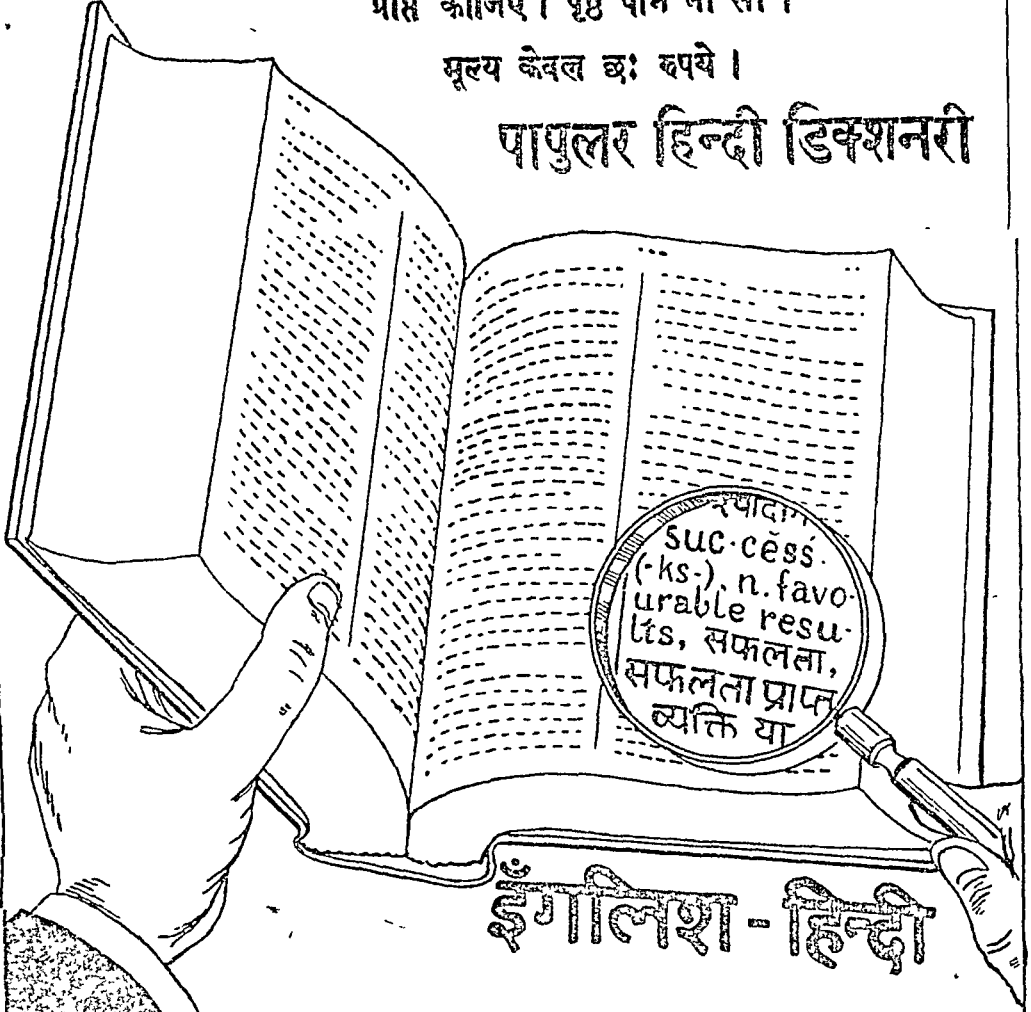 प्राप्त कीजिए । पृष्ठ पाँच सौ ।
मूल्य केवल छः रुपये ।
पापुलर हिन्दी डिक्शनरी
suc·cĕss·
(-ks-). n. favo-
urable resu-
lts, सफलता,
सफलता प्राप्त
व्यक्ति या
इँगलिश - हिन्दी